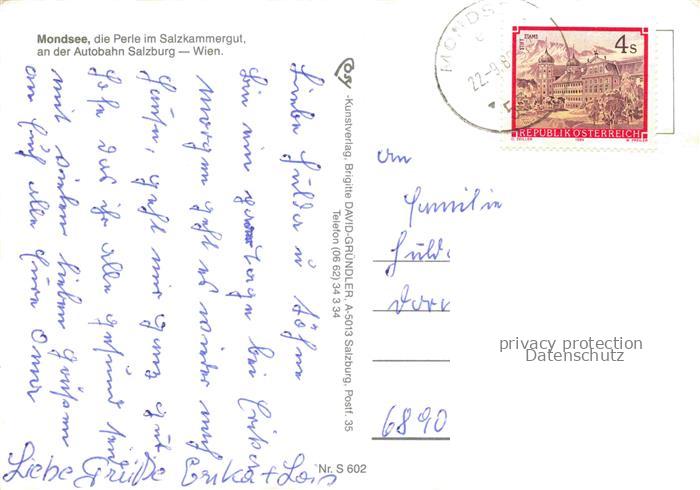 Mondsee, die Perle im Salzkammergut,
an der Autobahn Salzburg — Wien.
Liebe Hulda u Söhne
bin ein paar Tage bei Erika
morgen geht es wieder nach
Hause, geht mir ganz gut
hoffe das ihr alle gesund seid
mit vielen lieben Grüßen
an Euch alle Eure Oma
Liebe Grüße Erika + Lois
Cosy -Kunstverlag, Brigitte DAVID-GRÜNDLER, A-5013 Salzburg, Postf. 35
Telefon (06 62) 34 3 34
Nr. S 602
MONDS
22.-9.8
5
STIFT STAMS
4 S
REPUBLIK ÖSTERREICH
An
Familie
Huld
Dorn
6890
privacy protection
Datenschutz